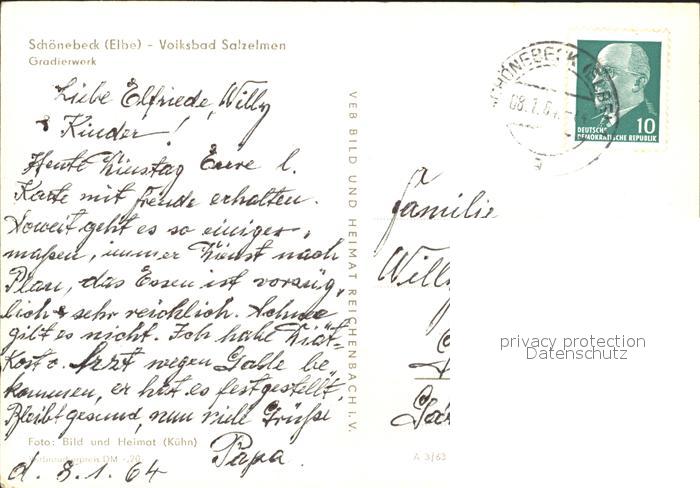 Schönebeck (Elbe) - Volksbad Salzelmen
Gradierwerk
Liebe Elfriede, Willy
& Kinder!
Heute Dinstag Eure l.
Karte mit Freude erhalten.
Soweit geht es so einiger-
maßen, immer Dienst nach
Plan, das Essen ist vorzüg-
lich & sehr reichlich. Schnee
gibt es nicht. Ich habe Diät-
Kost v. Arzt wegen Galle be-
kommen, er hat es festgestellt.
Bleibt gesund, nun viele Grüße
Papa.
d. 8.1.64
Foto: Bild und Heimat (Kühn)
Verbraucherpreis DM -,20
VEB BILD UND HEIMAT REICHENBACH I. V.
A 3/63
SCHÖNEBECK (ELBE)
08.1.64
a
10
DEUTSCHE
DEMOKRATISCHE REPUBLIK
Familie
Willy
privacy protection
Datenschutz